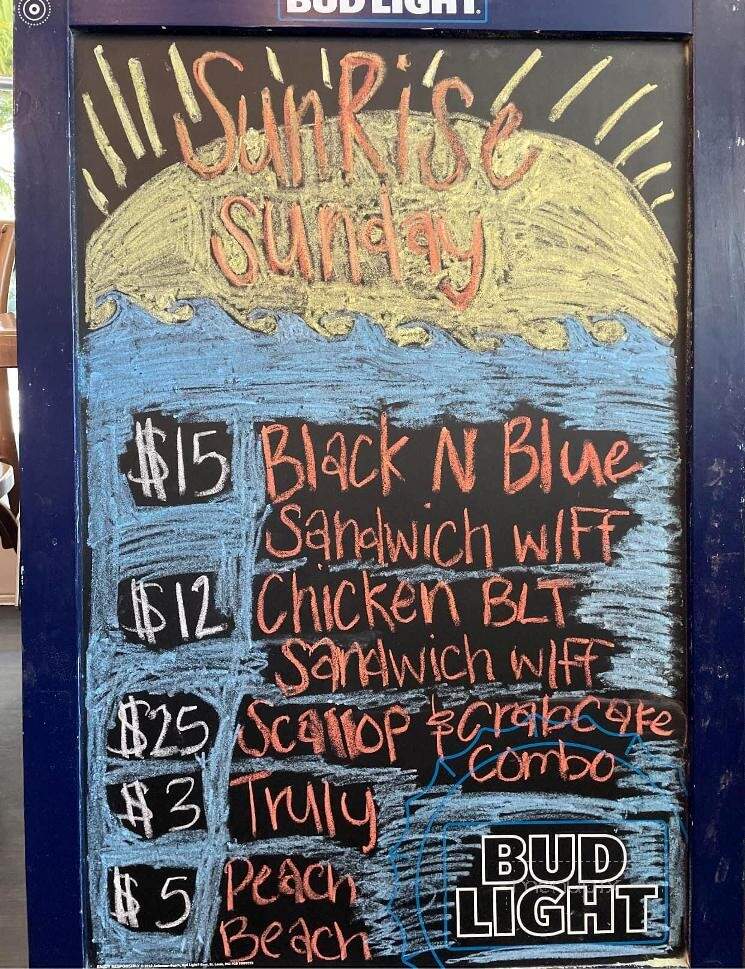 BUD LIGHT.
SunRise
Sunday
$15 Black N Blue
Sandwich w/FF
$12 Chicken BLT
Sandwich w/FF
$25 Scallop & CrabCake
Combo
$3 Truly
$5 Peach
Beach
BUD
LIGHT